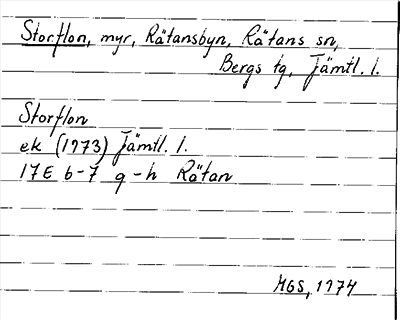 Storflon, myr, Rätansbyn, Rätans sn,
Bergs tg, Jämtl. l.
Storflon
ek (1973) Jämtl. l.
17E 6-7 g-h Rätan
MGS, 1974